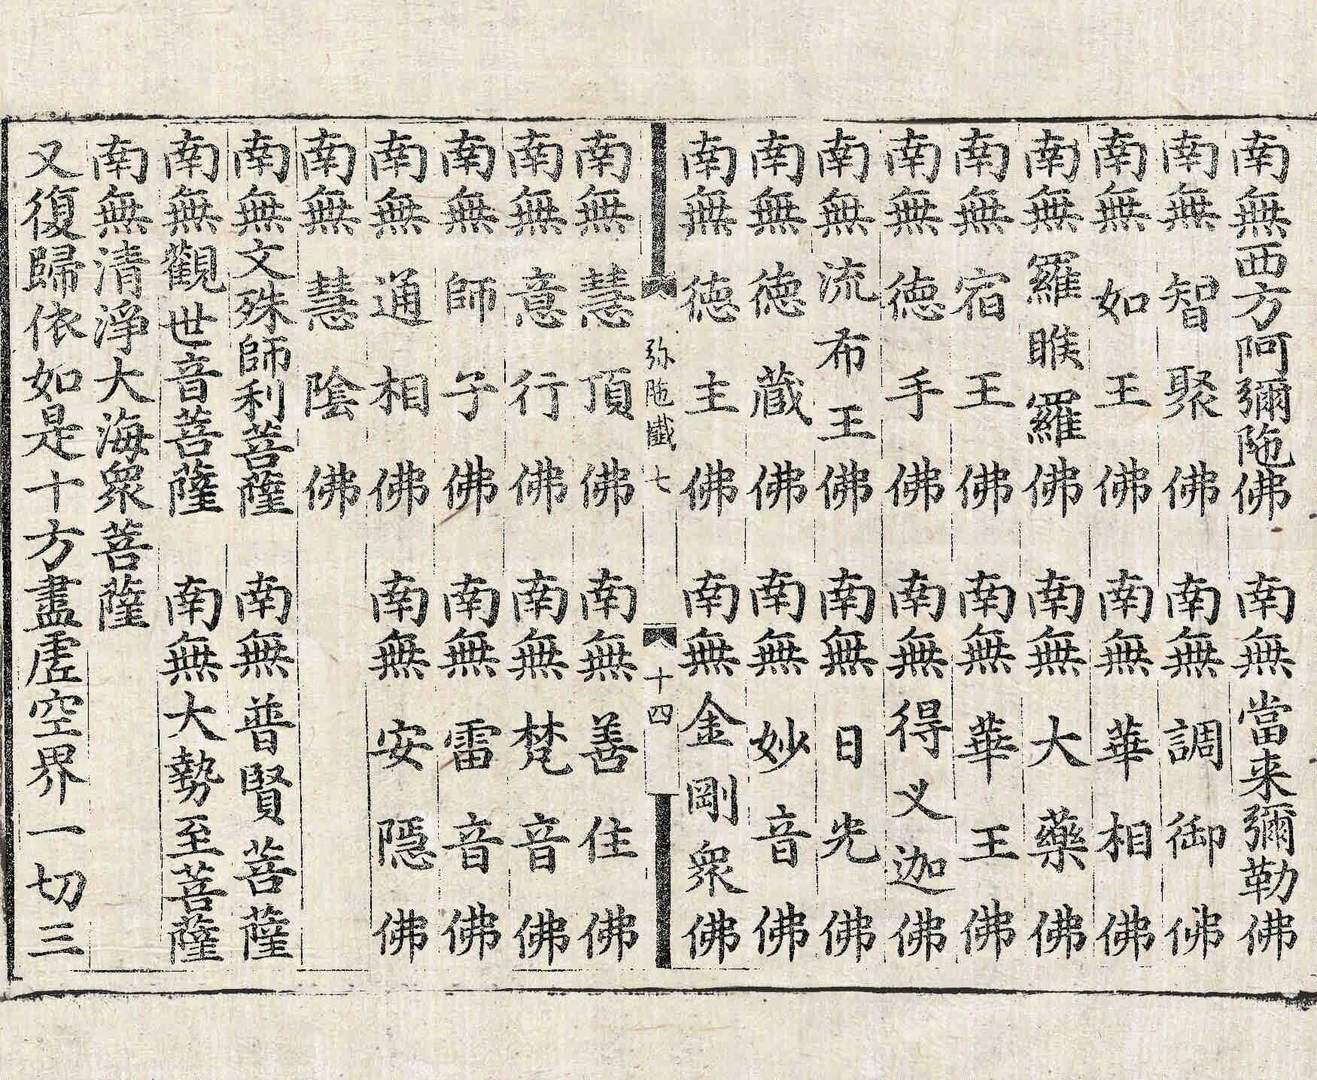 南無西方阿彌陁佛　南無當来彌勒佛
南無智聚佛　南無調御佛
南無如王佛　南無華相佛
南無羅睺羅佛　南無大藥佛
南無宿王佛　南無華王佛
南無德手佛　南無得义迦佛
南無流布王佛　南無日光佛
南無德藏佛　南無妙音佛
南無德主佛　南無金剛眾佛
弥陁懺七　十四
南無慧頂佛　南無善住佛
南無意行佛　南無梵音佛
南無師子佛　南無雷音佛
南無通相佛　南無安隱佛
南無慧陰佛
南無文殊師利菩薩　南無普賢菩薩
南無觀世音菩薩　南無大勢至菩薩
南無清淨大海眾菩薩
又復歸依如是十方盡虛空界一切三